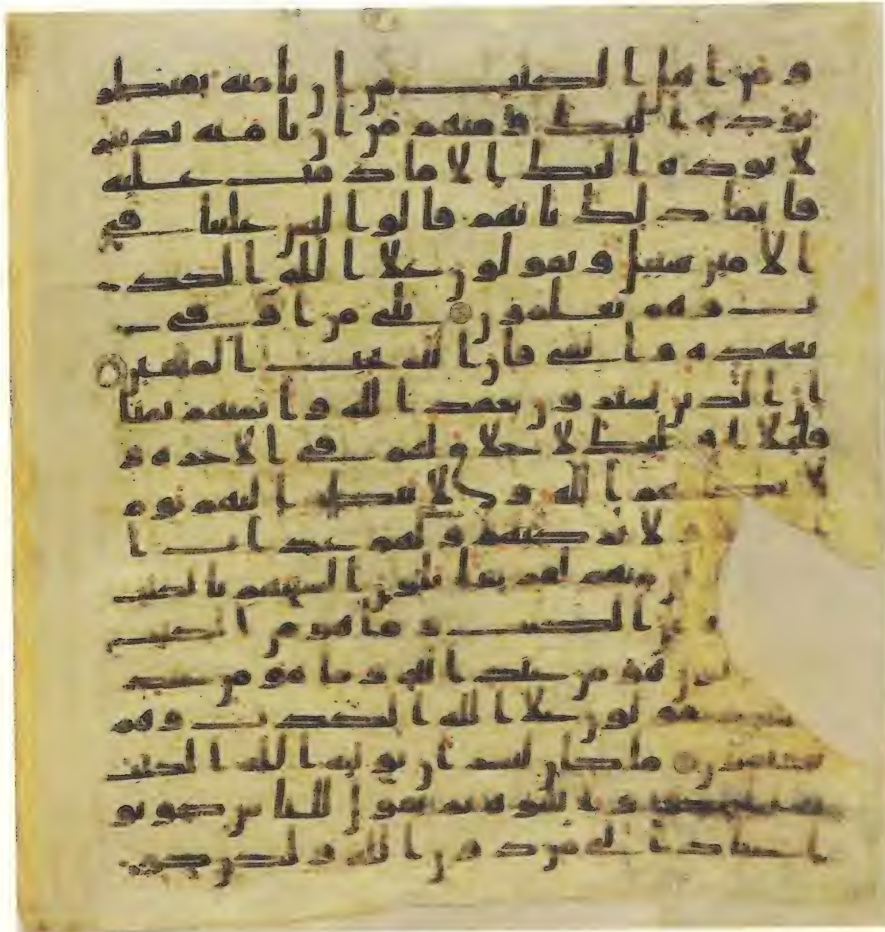 و من اهل الكتب من ان تامنه بقنطر
يوده اليك و منهم من ان تامنه بدينر
لا يوده اليك الا ما دمت عليه
قايما ذلك بانهم قالوا ليس علينا في
الامين سبيل و يقولون علا الله الكذ
ب و هم يعلمون بلى من اوفى
بعهده و اتقى فان الله يحب المتقين
ان الذين يشترون بعهد الله و ايمنهم ثمنا
قليلا اوليك لا خلاق لهم في الاخره و
لا يكلمهم الله و لا ينظر اليهم يوم
و لا يزكيهم و لهم عذاب ا
منهم لفريقا يلون السنتهم بالكتب
من الكتب و ما هو من الكتب
لون هو من عند الله و ما هو من عند
يقولون علا الله الكذب و هم
يعلمون ما كان لبشر ان يوتيه الله الكتب
و النبوه ثم يقول للناس كونو
ا عبادا لي من دون الله و لكن كو